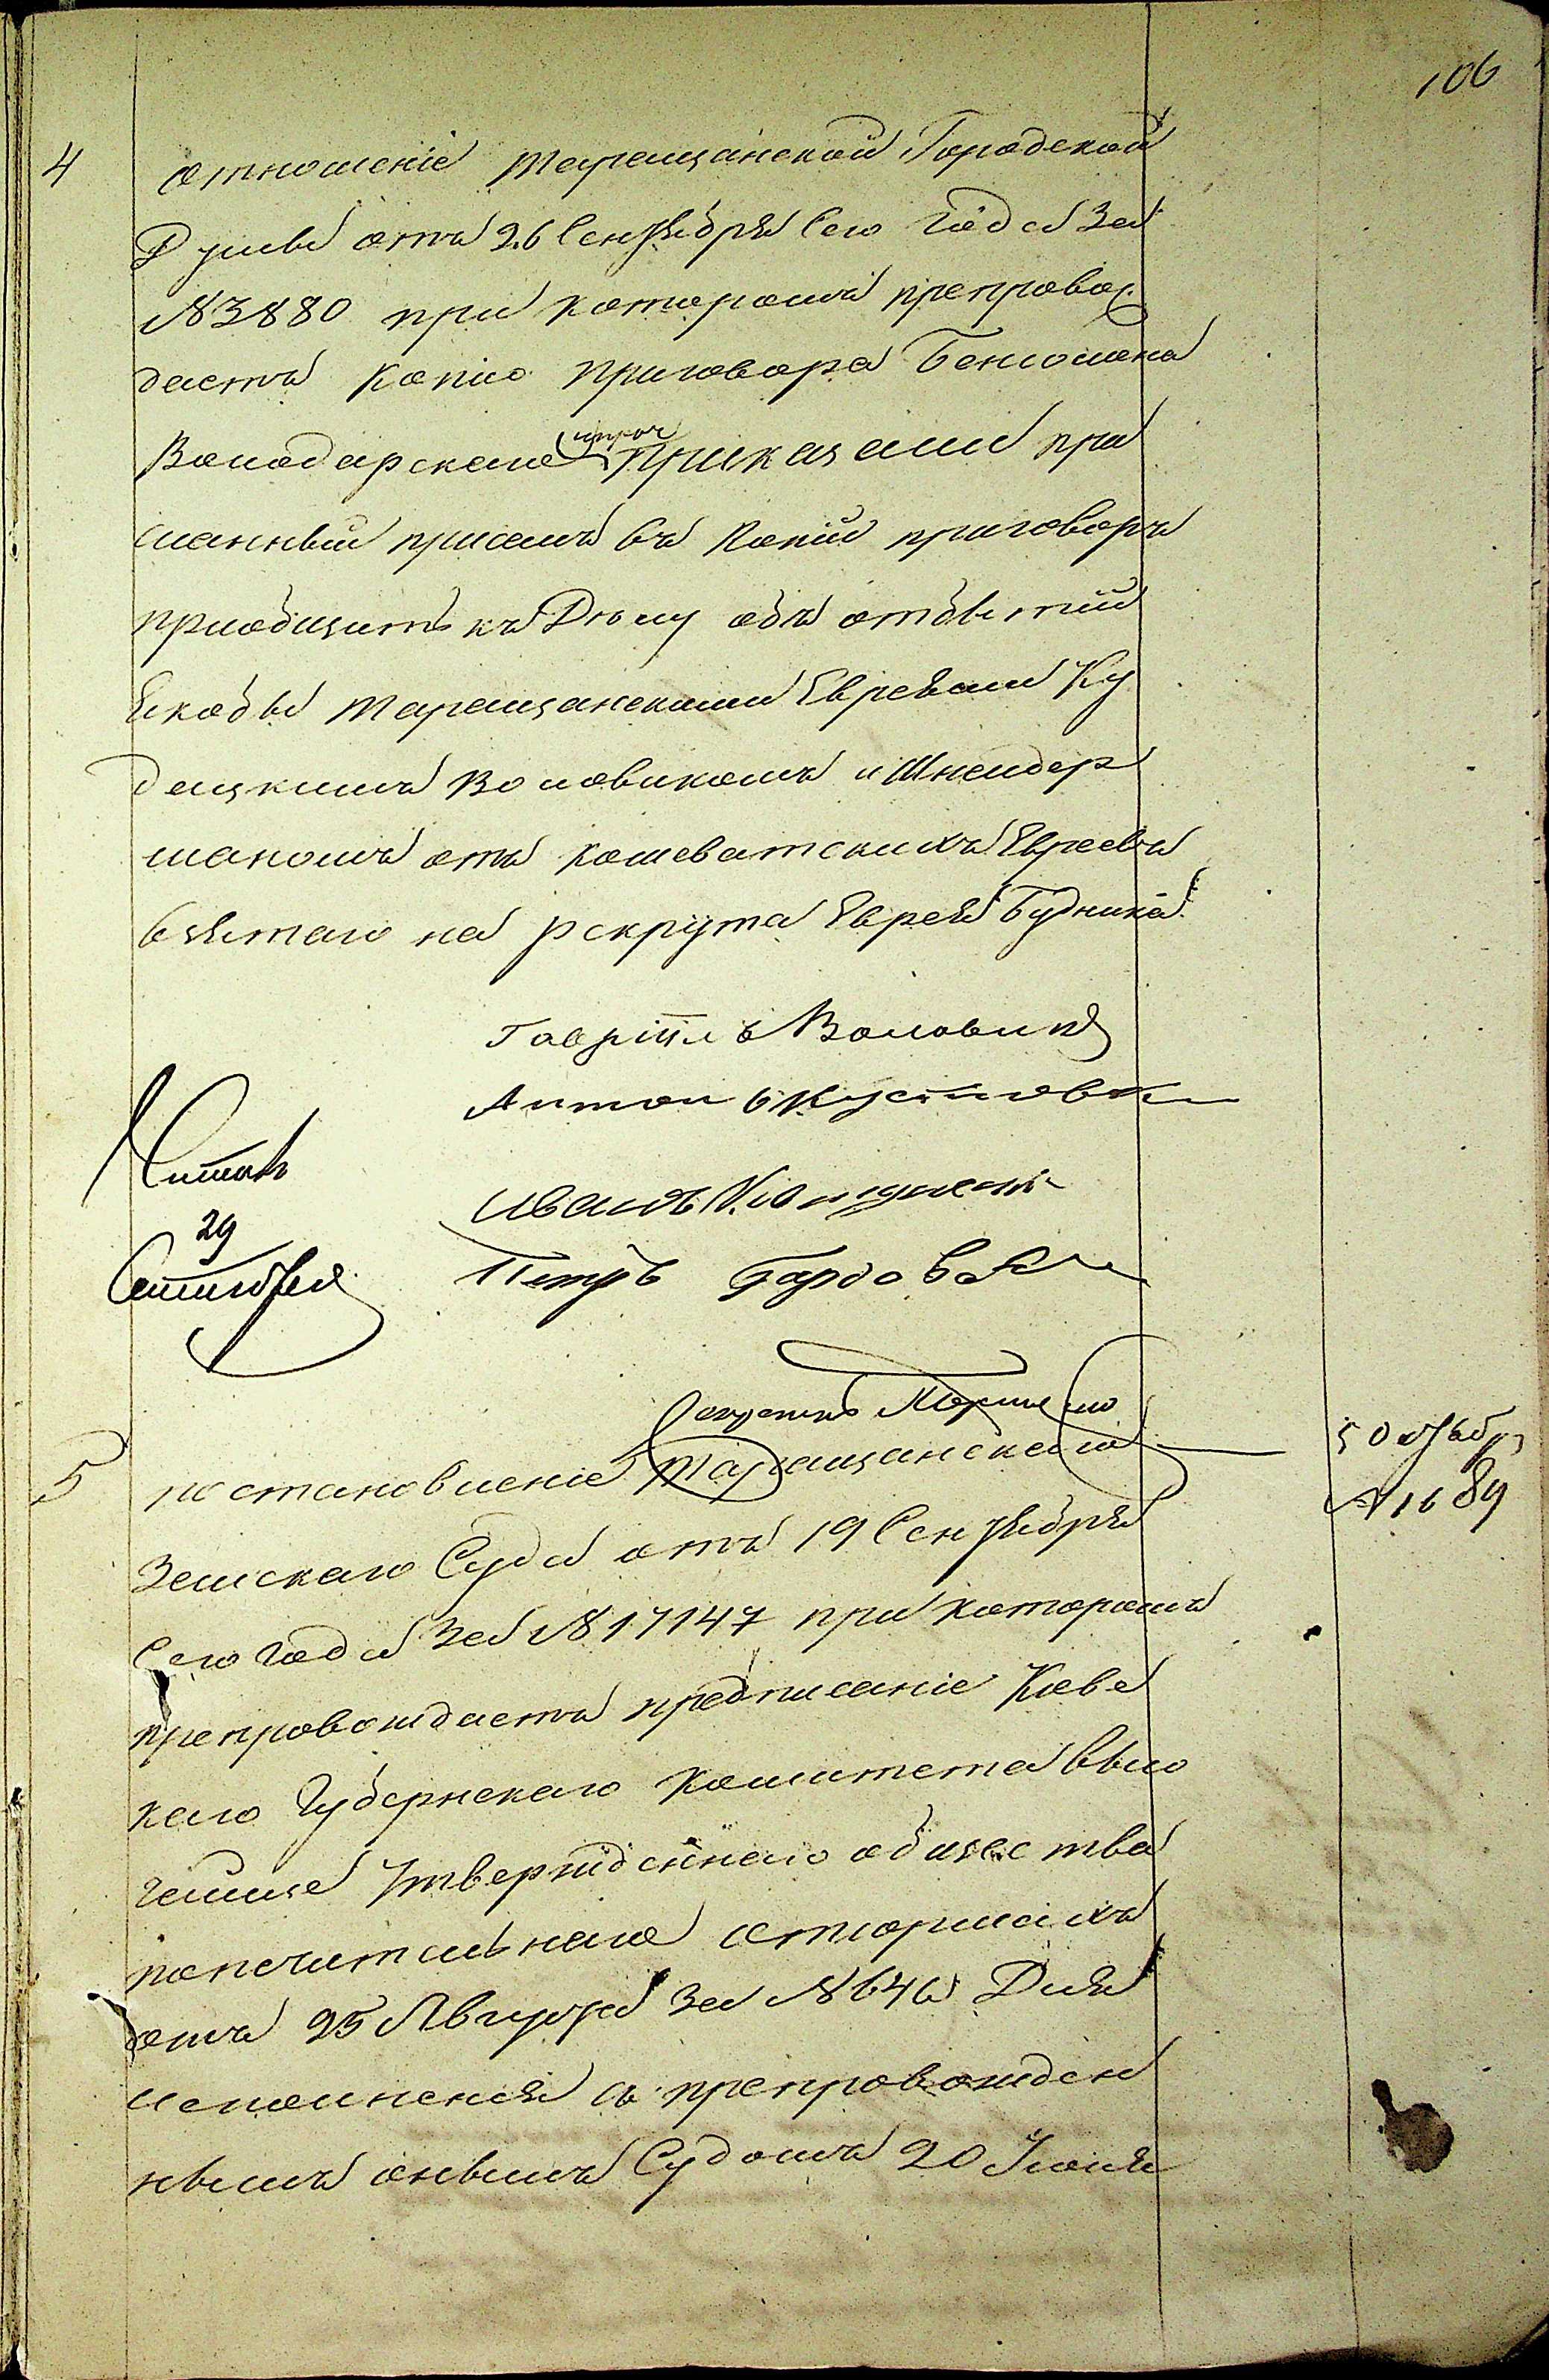 106
4
отношеніе таращанской Городской
Думы отъ 26 Сентября сего года за
№ 3880 при которомъ препровож
даетъ копію приговора Беніомена
Володарскаго ипроч приказали при
сланный присемъ въ копіи приговоръ
приобщить къ Дѣлу объ отбытіи
якобы таращанскими Евреями Ку
децкимъ Воловикомъ и Шнейдер
маномъ отъ кошеватскихъ Евреевъ
взятаго на рекрута Еврея Будника
Гавріилъ Воловик
Антонъ
Иванъ
Петръ
Читалъ
29
Сентября
Секретарь
5
постановленіе Таращанскаго
5 Октябр
№ 1689
Земскаго Суда отъ 19 Сентября
сего года за № 17147 при которомъ
препровождаетъ предписаніе Кіевс
каго Губернскаго Комитета Высо
чайше Утвержденнаго общества
попечительнаго отюрмахъ
отъ 25 Августа за № 646 Для
исполненія съ препровожден
нымъ онымъ Судомъ 20 Іюля